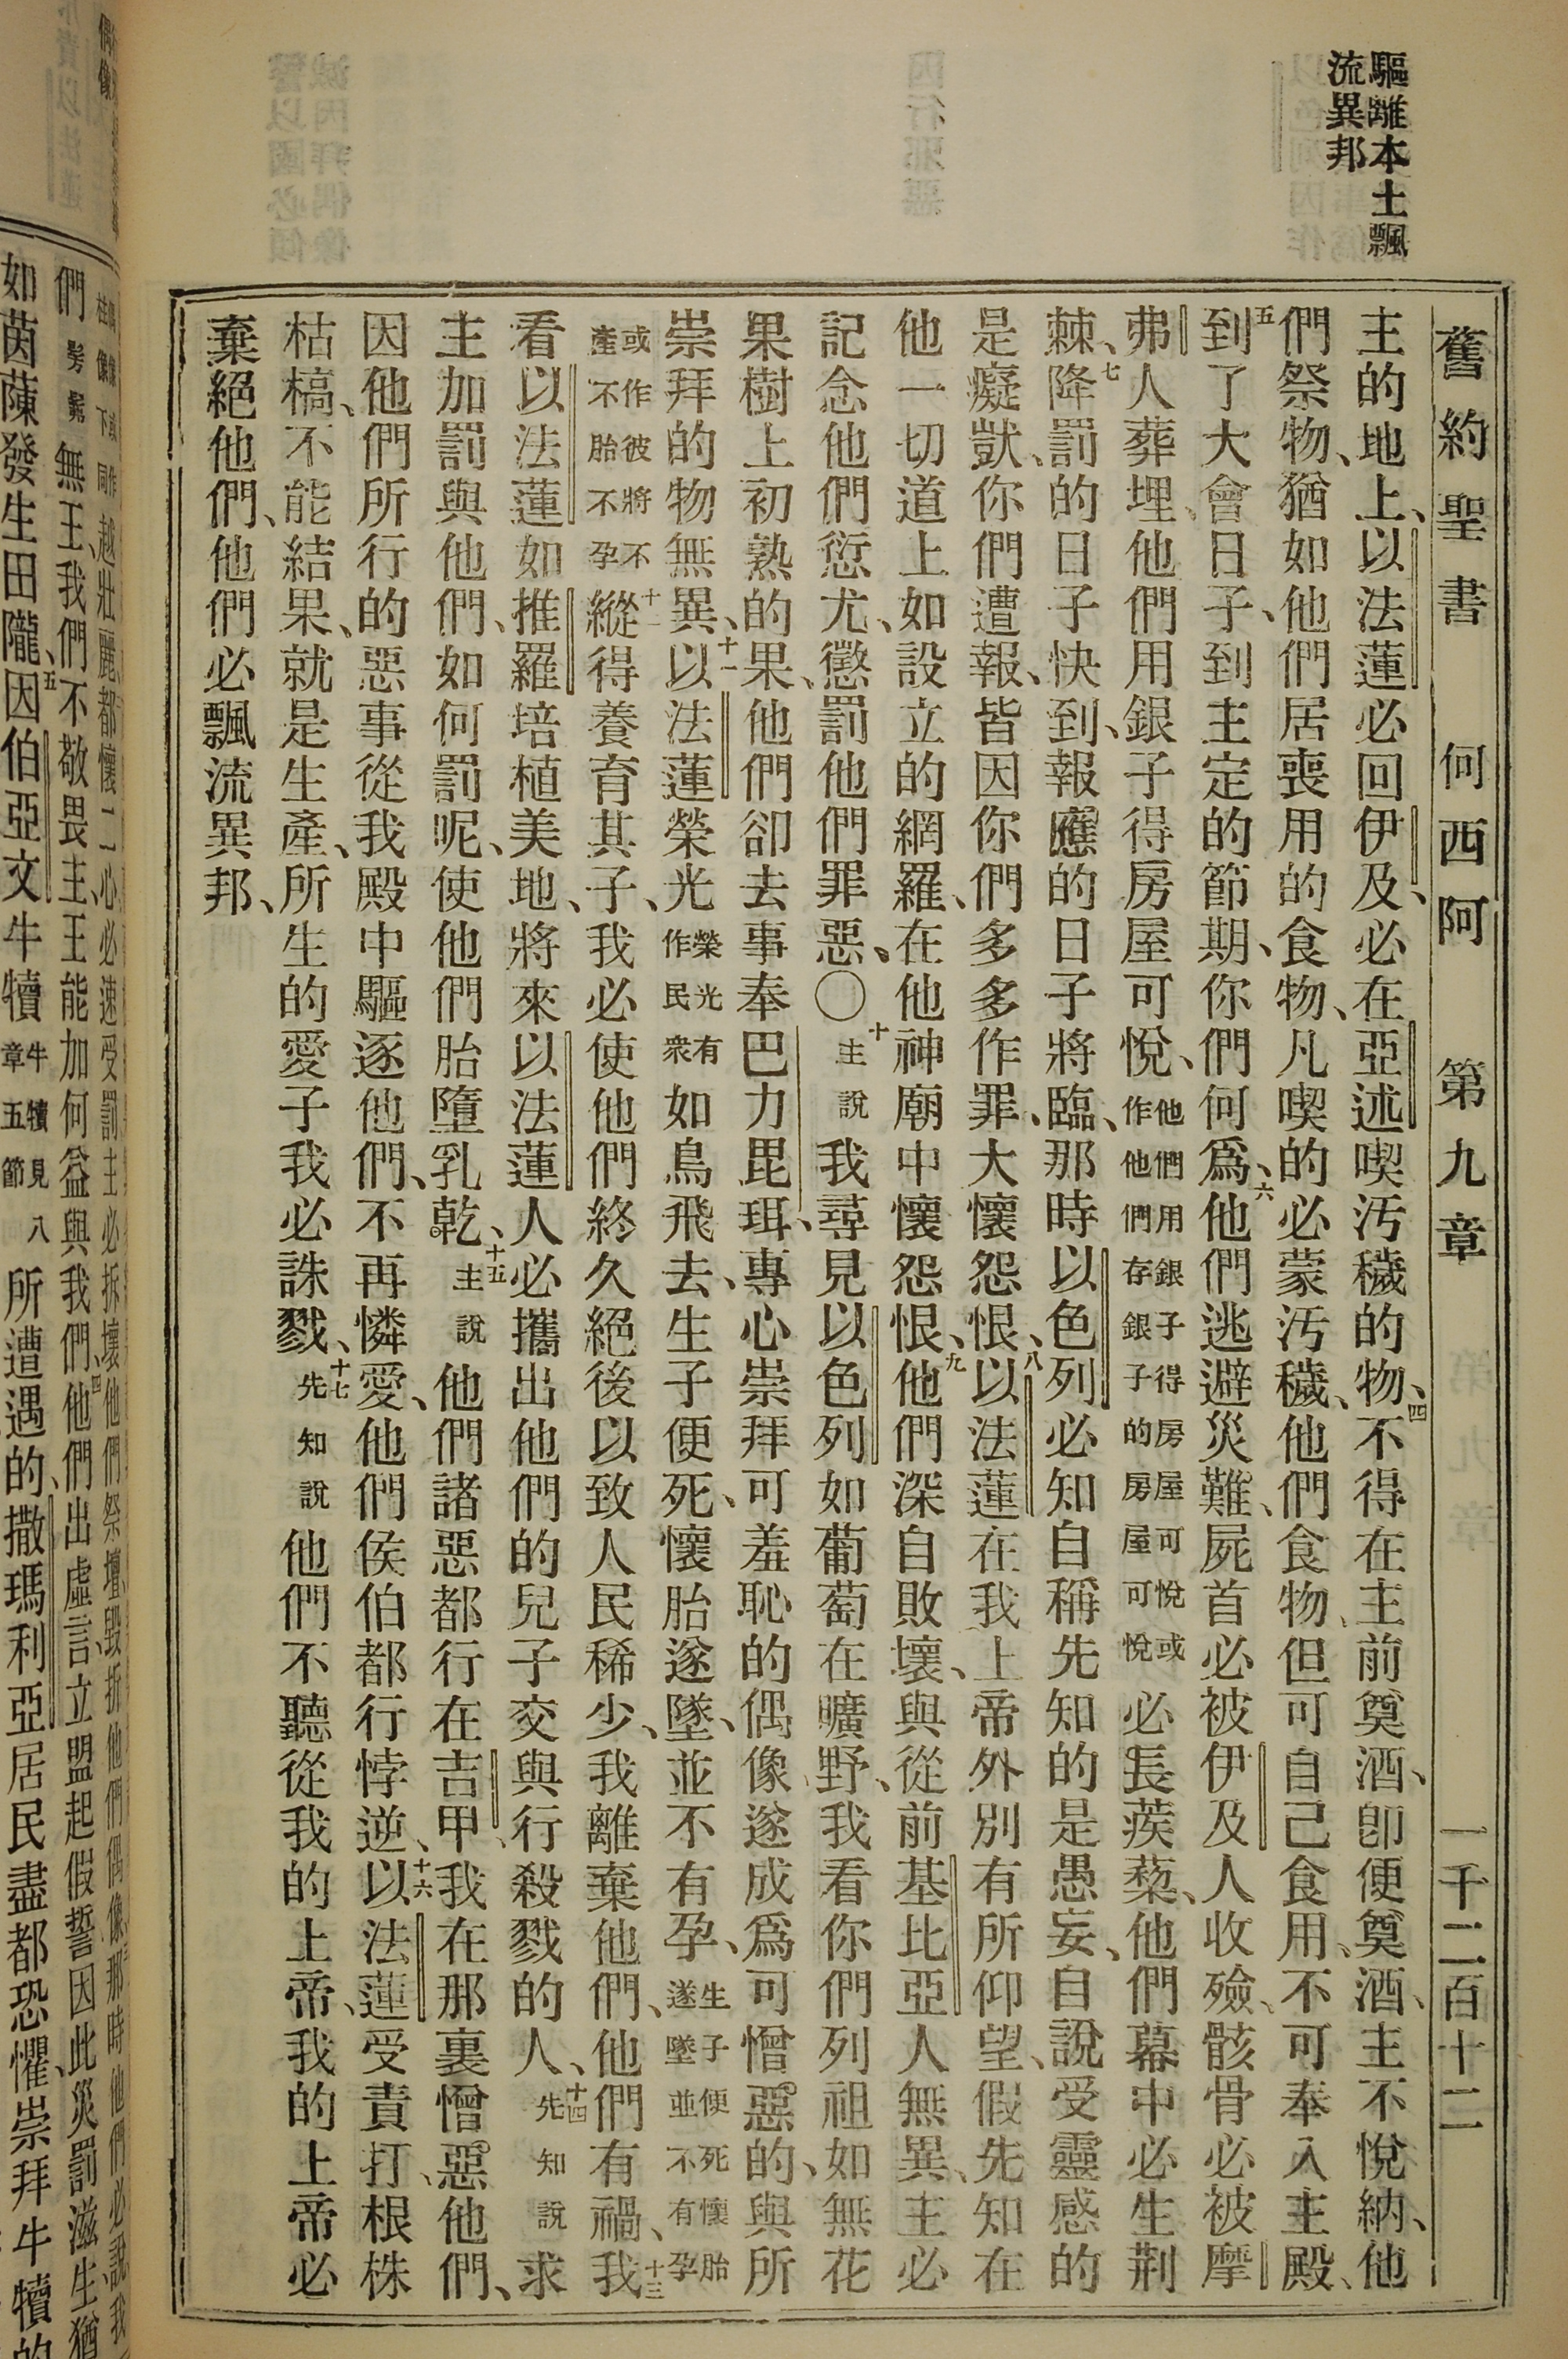 驅離本土飄
流異邦
舊約聖書 何西阿 第九章 一千二百十二
主的地上、以法蓮必回伊及、必在亞述喫汚穢的物、四不得在主前奠酒、卽便奠酒、主不悅納、他
們祭物、猶如他們居喪用的食物、凡喫的必蒙汚穢、他們食物、但可自己食用、不可奉入主殿、
五到了大會日子、到主定的節期、你們何爲、六他們逃避災難、屍首必被伊及人收殮、骸骨必被摩
弗人葬埋、他們用銀子得房屋可悅、他們用銀子得房屋可悅或作他們存銀子的房屋可悅必長蒺蔾、他們幕中必生荆
棘、七降罰的日子快到、報應的日子將臨、那時以色列必知自稱先知的是愚妄、自說受靈感的
是癡獃、你們遭報、皆因你們多多作罪、大懷怨恨、八以法蓮在我上帝外別有所仰望、假先知在
他一切道上如設立的網羅、在他神廟中懷怨恨、九他們深自敗壞、與從前基比亞人無異、主必
記念他們愆尤、懲罰他們罪惡、〇十主說我尋見以色列如葡萄在曠野、我看你們列祖如無花
果樹上初熟的果、他們卻去事奉巴力毘珥、專心崇拜可羞恥的偶像、遂成爲可憎惡的、與所
崇拜的物無異、十一以法蓮榮光榮光有作民衆如鳥飛去、生子便死、懷胎遂墜、並不有孕、生子便死懷胎遂墜並不有孕
或作彼將不產不胎不孕十二縱得養育其子、我必使他們終久絕後以致人民稀少、我離棄他們、他們有禍、十三我
看以法蓮如推羅培植美地、將來以法蓮人必攜出他們的兒子交與行殺戮的人、十四先知說求
主加罰與他們、如何罰呢、使他們胎墮乳乾、十五主說他們諸惡都行在吉甲、我在那裏憎惡他們、
因他們所行的惡事從我殿中驅逐他們、不再憐愛、他們侯伯都行悖逆、十六以法蓮受責打、根株
枯槁、不能結果、就是生產、所生的愛子我必誅戮、十七先知說他們不聽從我的上帝、我的上帝必
棄絕他們、他們必飄流異邦、
們無王、我們不敬畏主、王能加何益與我們、四他們出虛言立盟起假誓因此災罰滋生猶
如茵蔯發生田隴、五因伯亞文牛犢牛犢見八章五節所遭遇的、撒瑪利亞居民盡都恐懼、崇拜牛犢的